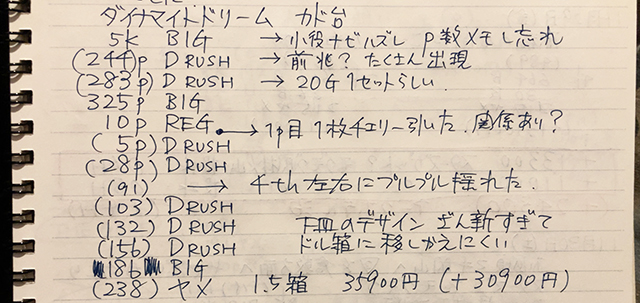 ダイナマイトドリーム カド台
5K BIG → 小役ナビルズレ P数メモし忘れ
(244)p DRUSH → 前兆? たくさん出現
(283p) DRUSH → 20G1セットらしい
325p BIG
10p REG → 1p目 1枚チェリー引いた.関係あり?
(5p) DRUSH
(28p) DRUSH
(91) → 4th左右にプルプル揺れた.
(103) DRUSH
(132) DRUSH 下皿のデザイン ざん新すぎて
(156) DRUSH ドル箱に移しかえにくい
186 BIG
(238) ヤメ 1.5箱 35900円 (+30900円)